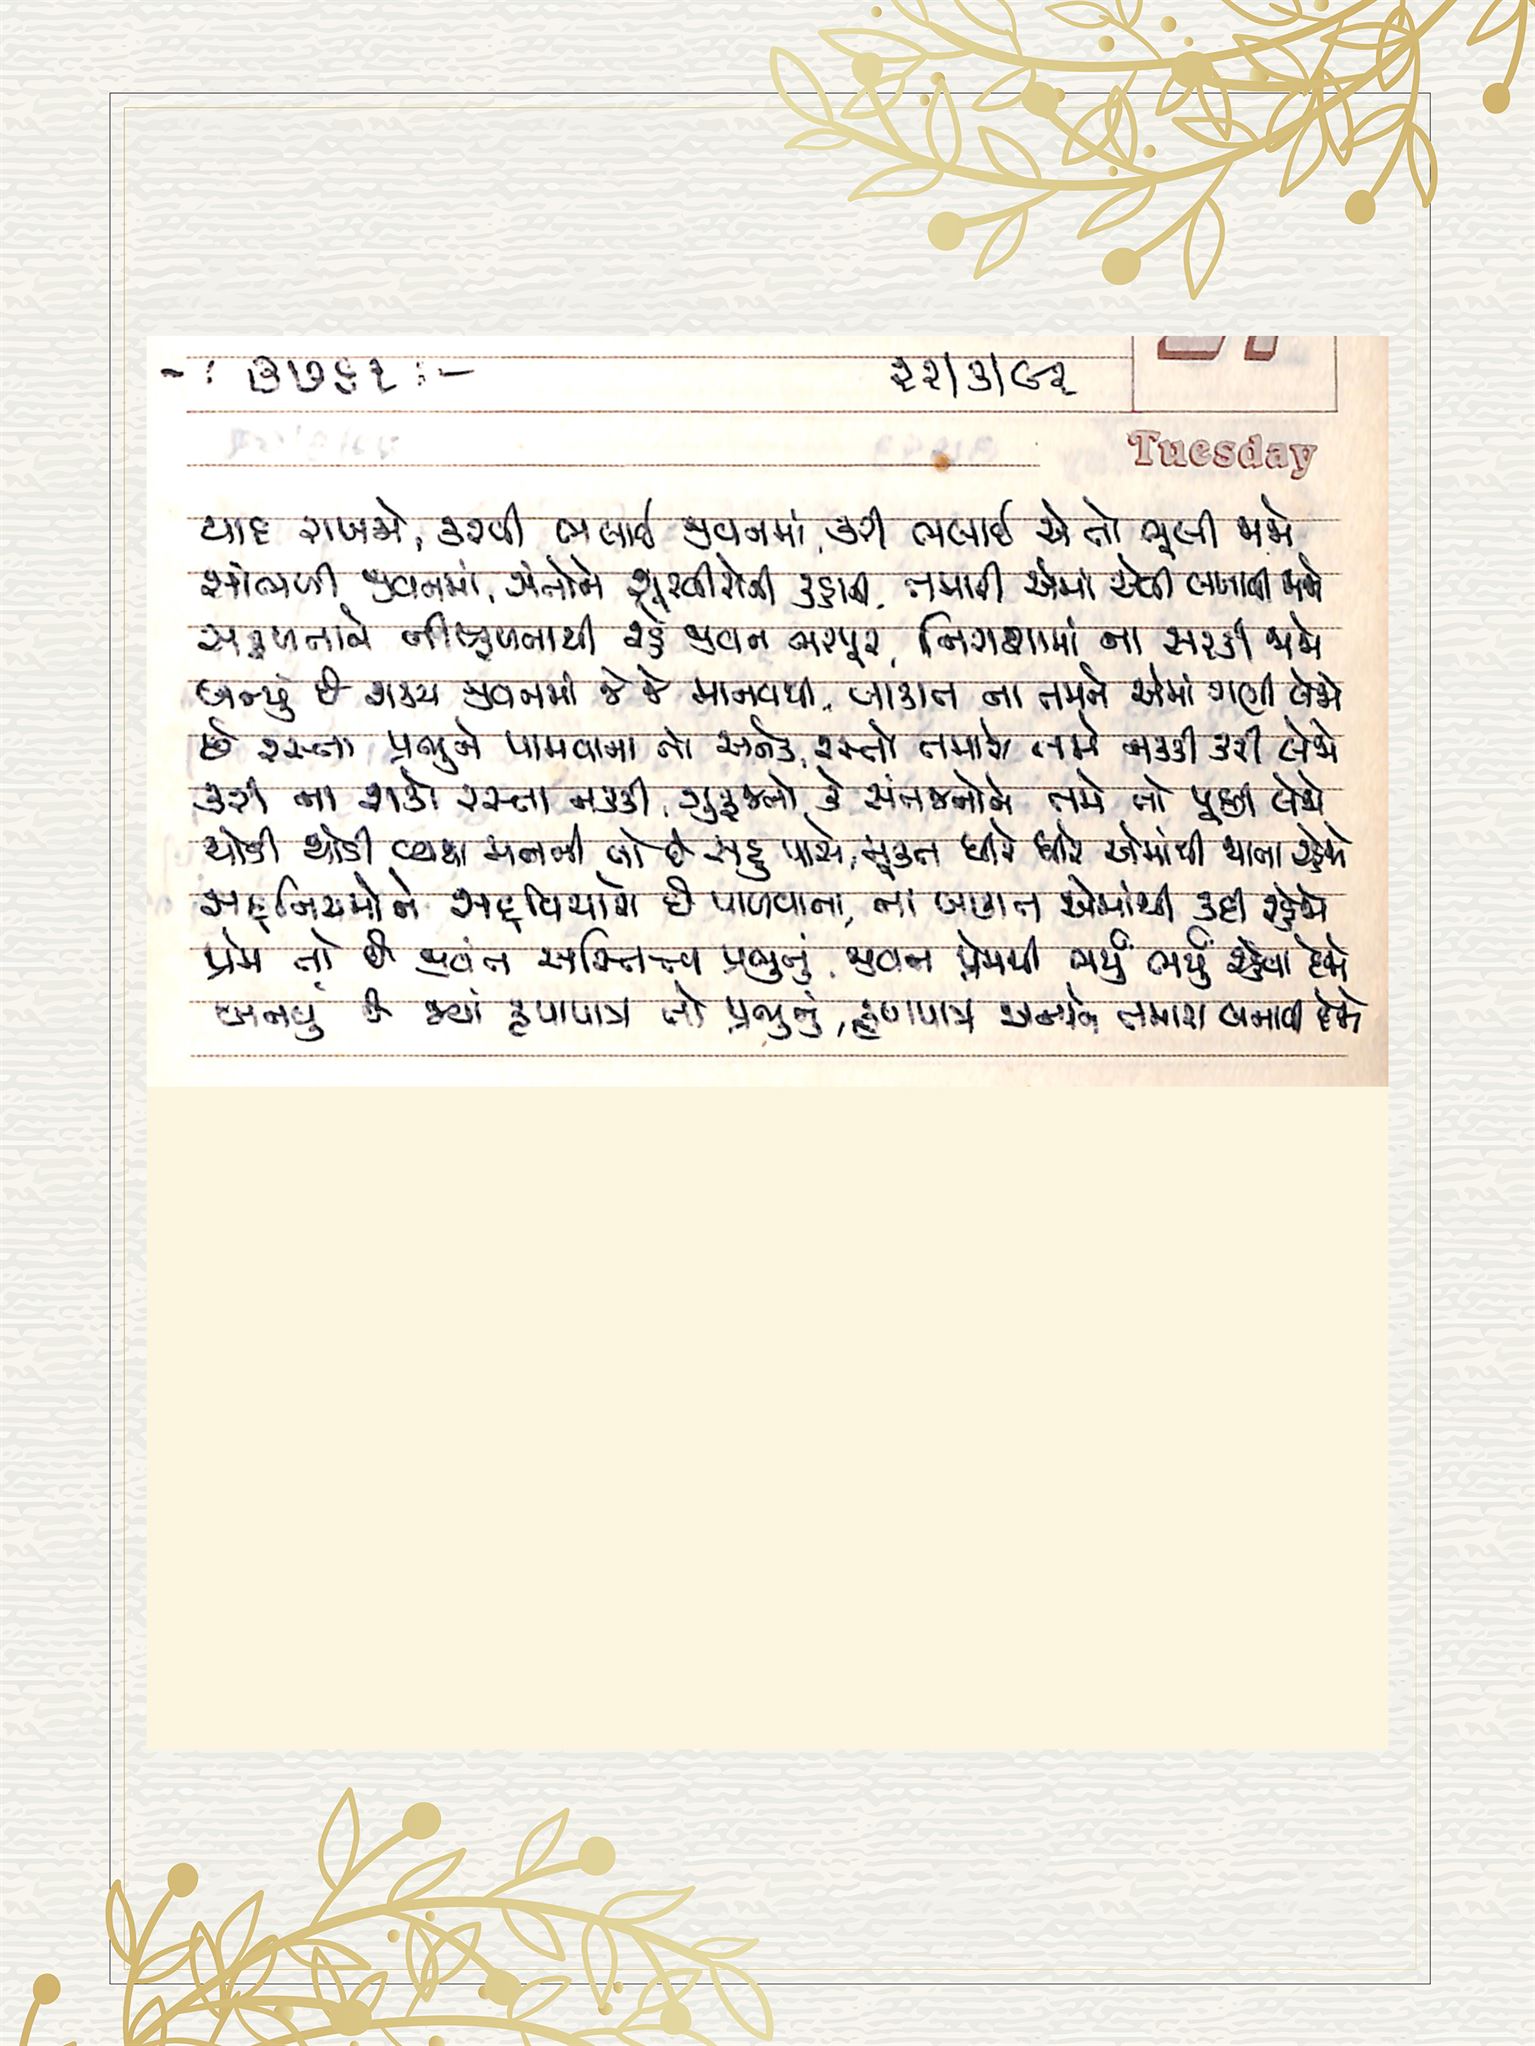 -: ૩૭૬૨ :-
૨૨/૩/૯૨
Tuesday
યાદ રાખજો, કરવી ભલાઈ જીવનમાં, કરી ભલાઈ એ તો ભૂલી જાજો
સાંભળી જીવનમાં, સંતોને શૂરવીરોની તમારી એમાં એવી બનાવી
સફળતાને નીષ્ફળતાથી રહે જીવન ભરપૂર, નિરાશામાં ના સરકી જાજો
બન્યું છે શક્ય જીવનમાં જે જે માનવથી, બાકાત ના તમને એમાં ગણી લેજો
છે રસ્તા પ્રભુને પામવાના તો અનેક, રસ્તો તમારો તમે નક્કી કરી લેજો
કરી ના શકો રસ્તા નક્કી, ગુરુજનો કે સંતજનોને તમે તો પૂછી લેજો
થોડી થોડી વ્યથા મનની તો છે સહુ પાસે, મૂક્ત ધીરે ધીરે એમાંથી થાતા રહેજો
સદ્દનિયમોને સદ્દવિચારો છે પાળવાના, ના બાકાત એમાંથી કદી રહેજો
પ્રેમ તો છે જીવંત અસ્તિત્ત્વ પ્રભુનું, જીવન પ્રેમથી ભર્યું ભર્યું રહેવા દેજો
બનવું છે જ્યાં કૃપાપાત્ર તો પ્રભુનું, કૃપાપાત્ર અન્યને તમારા બનાવી દેજો